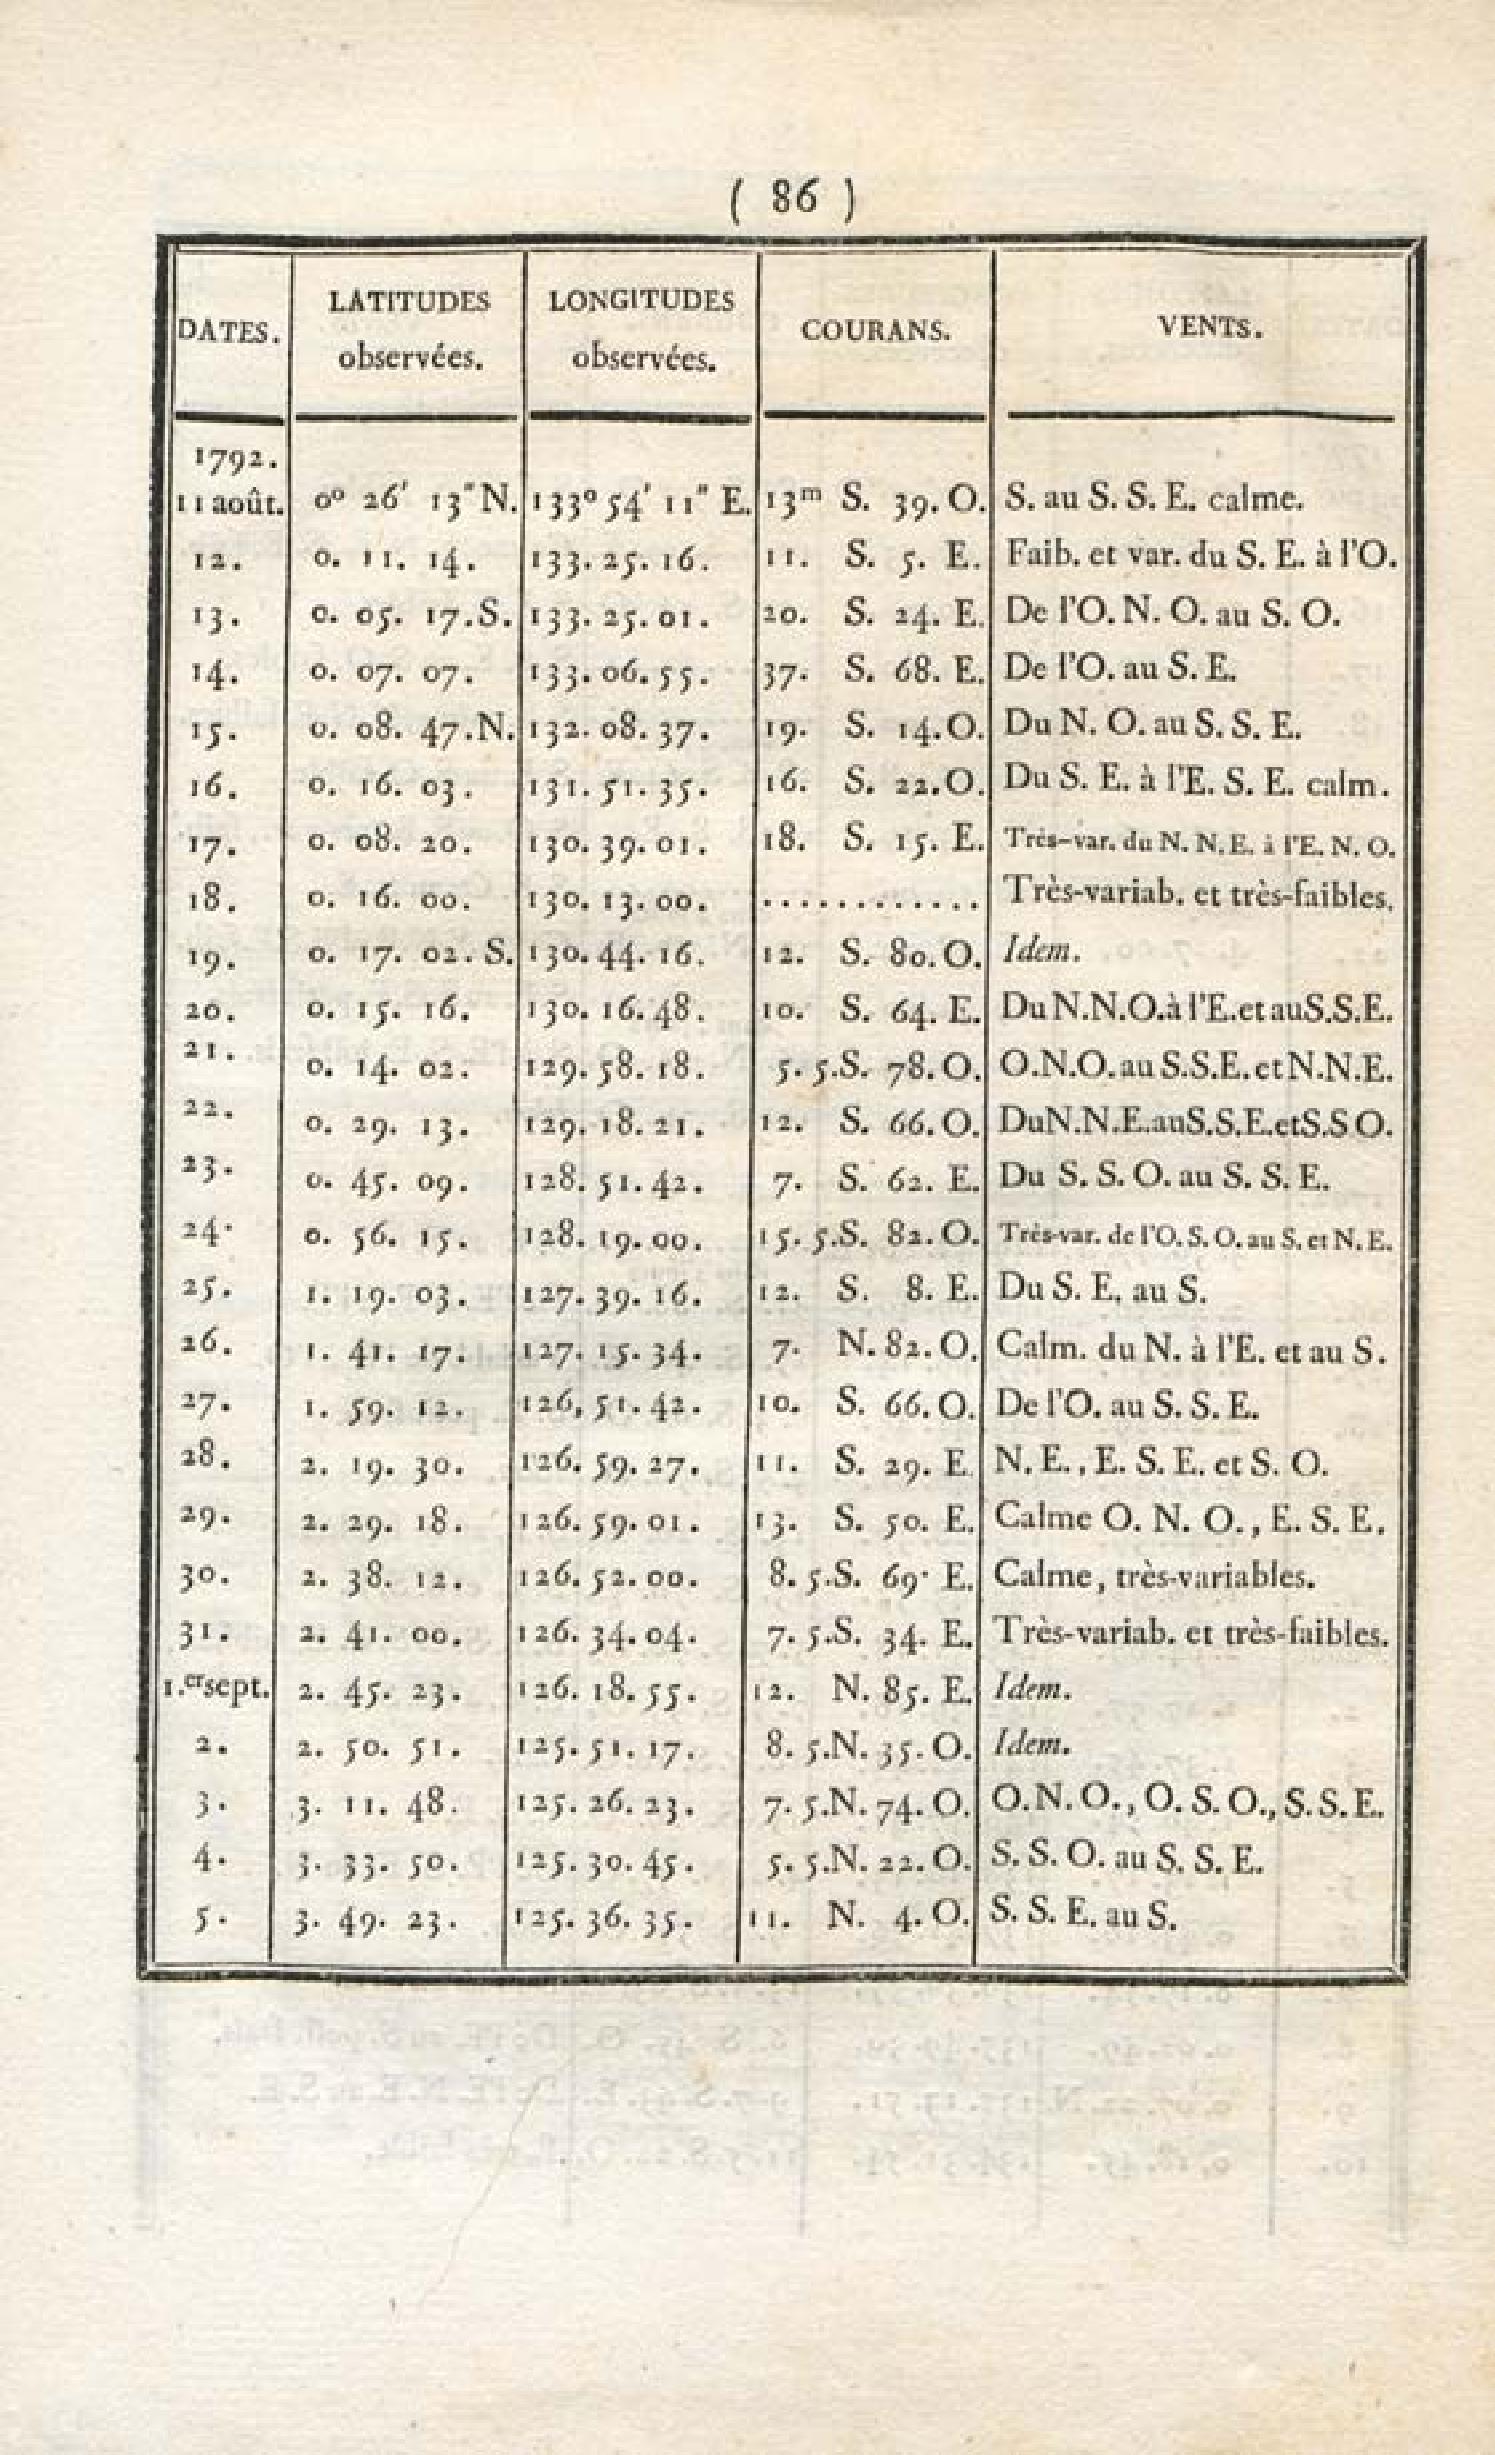 ( 86 )
DATES. LATITUDES observées. LONGITUDES observées. COURANS. VENTS.
1792.
11 août. 0° 26' 13" N. 133° 54' 11" E. 13m S. 39. O. S. au S. S. E. calme.
12. 0. 11. 14. 133. 25. 16. 11. S. 5. E. Faib. et var. du S. E. à l'O.
13. 0. 05. 17. S. 133. 25. 01. 20. S. 24. E. De l'O. N. O. au S. O.
14. 0. 07. 07. 133. 06. 55. 37. S. 68. E. De l'O. au S. E.
15. 0. 08. 47. N. 132. 08. 37. 19. S. 14. O. Du N. O. au S. S. E.
16. 0. 16. 03. 131. 51. 35. 16. S. 22. O. Du S. E. à l'E. S. E. calm.
17. 0. 08. 20. 130. 39. 01. 18. S. 15. E. Très-var. du N. N. E. à l'E. N. O.
18. 0. 16. 00. 130. 13. 00. ............ Très-variab. et très-faibles.
19. 0. 17. 02. S. 130. 44. 16. 12. S. 80. O. Idem.
20. 0. 15. 16. 130. 16. 48. 10. S. 64. E. Du N.N.O. à l'E. et au S.S.E.
21. 0. 14. 02. 129. 58. 18. 5. 5. S. 78. O. O.N.O. au S.S.E. et N.N.E.
22. 0. 29. 13. 129. 18. 21. 12. S. 66. O. Du N.N.E. au S.S.E. et S.S O.
23. 0. 45. 09. 128. 51. 42. 7. S. 62. E. Du S. S. O. au S. S. E.
24. 0. 56. 15. 128. 19. 00. 15. 5. S. 82. O. Très-var. de l'O. S. O. au S. et N. E.
25. 1. 19. 03. 127. 39. 16. 12. S. 8. E. Du S. E. au S.
26. 1. 41. 17. 127. 15. 34. 7. N. 82. O. Calm. du N. à l'E. et au S.
27. 1. 59. 12. 126. 51. 42. 10. S. 66. O. De l'O. au S. S. E.
28. 2. 19. 30. 126. 59. 27. 11. S. 29. E. N. E., E. S. E. et S. O.
29. 2. 29. 18. 126. 59. 01. 13. S. 50. E. Calme O. N. O., E. S. E.
30. 2. 38. 12. 126. 52. 00. 8. 5. S. 69. E. Calme, très-variables.
31. 2. 41. 00. 126. 34. 04. 7. 5. S. 34. E. Très-variab. et très-faibles.
1.er sept. 2. 45. 23. 126. 18. 55. 12. N. 85. E. Idem.
2. 2. 50. 51. 125. 51. 17. 8. 5. N. 35. O. Idem.
3. 3. 11. 48. 125. 26. 23. 7. 5. N. 74. O. O. N. O., O. S. O., S. S. E.
4. 3. 33. 50. 125. 30. 45. 5. 5. N. 22. O. S. S. O. au S. S. E.
5. 3. 49. 23. 125. 36. 35. 11. N. 4. O. S. S. E. au S.